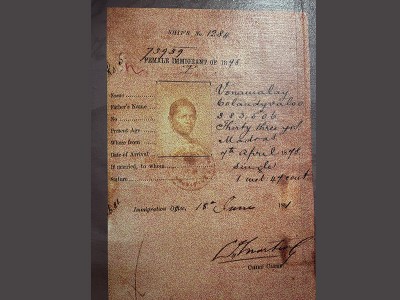 SHIP'S No 1284
73939
FEMALE IMMIGRANT OF 1898
Name Vonamalay
Father's Name Colandyvaloo
No. 383,606
Present Age Thirty three yrs
Where from Madras
Date of Arrival 7th April 1898
If married, to whom single
Stature 1 met 47 cent
Immigration Office, 18th June
CHIEF CLERK